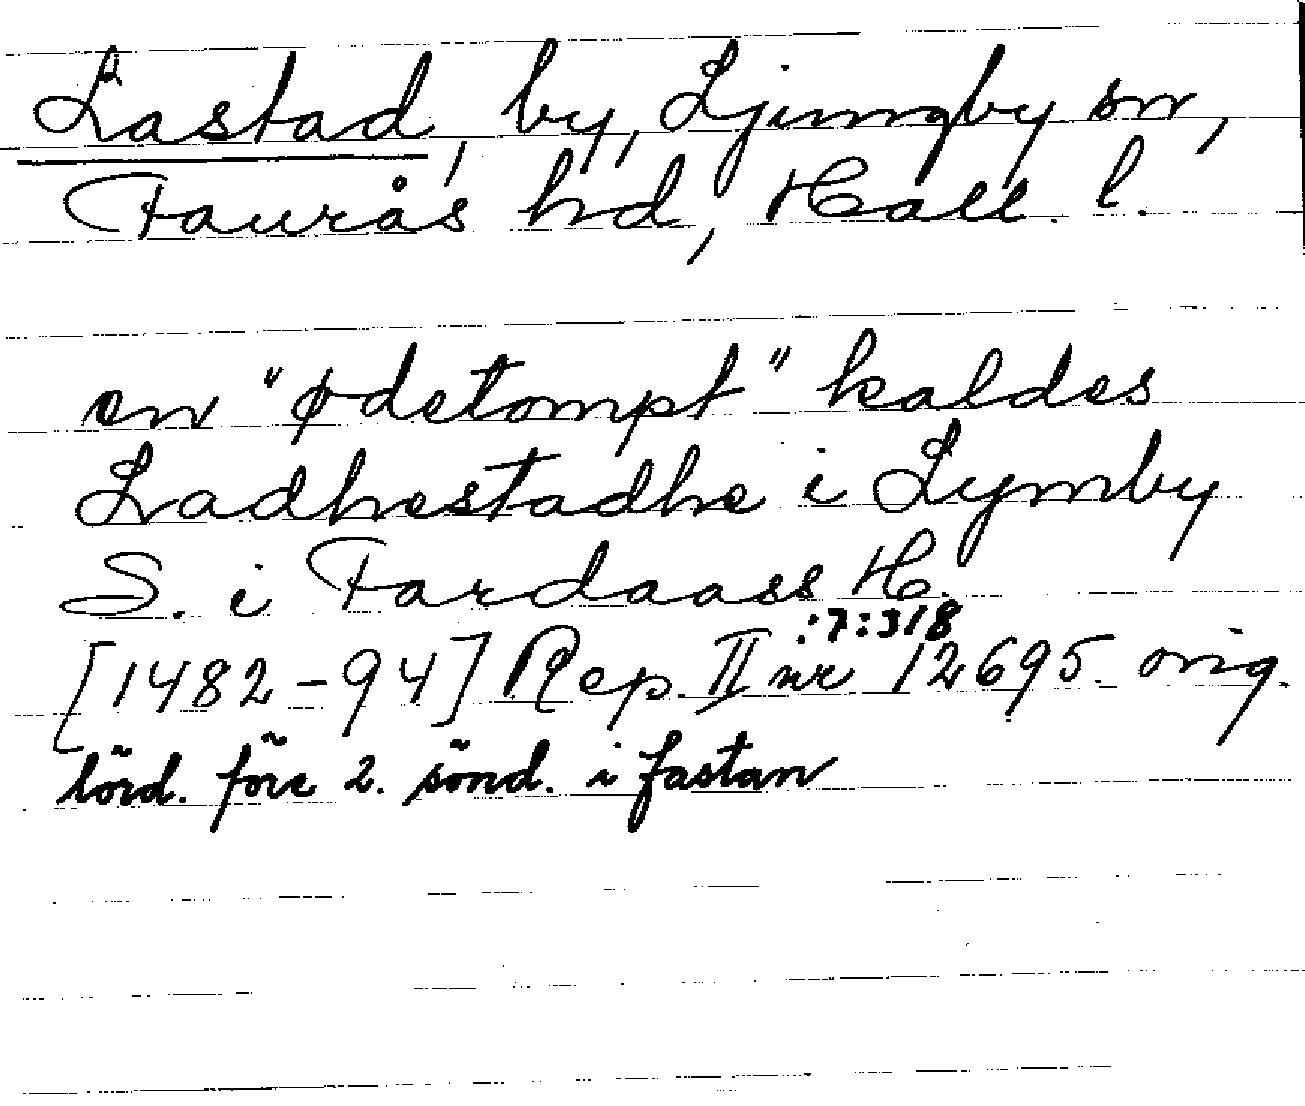 Lastad, by, Ljungby sn,
Faurås hd, Hall. l.
en "ødetompt" kaldes
Ladhestadhe i Lymby
S. i Fardaass H.
:7:318
[1482-94] Rep. II nr 12695. orig.
lörd. före 2. sönd. i fastan